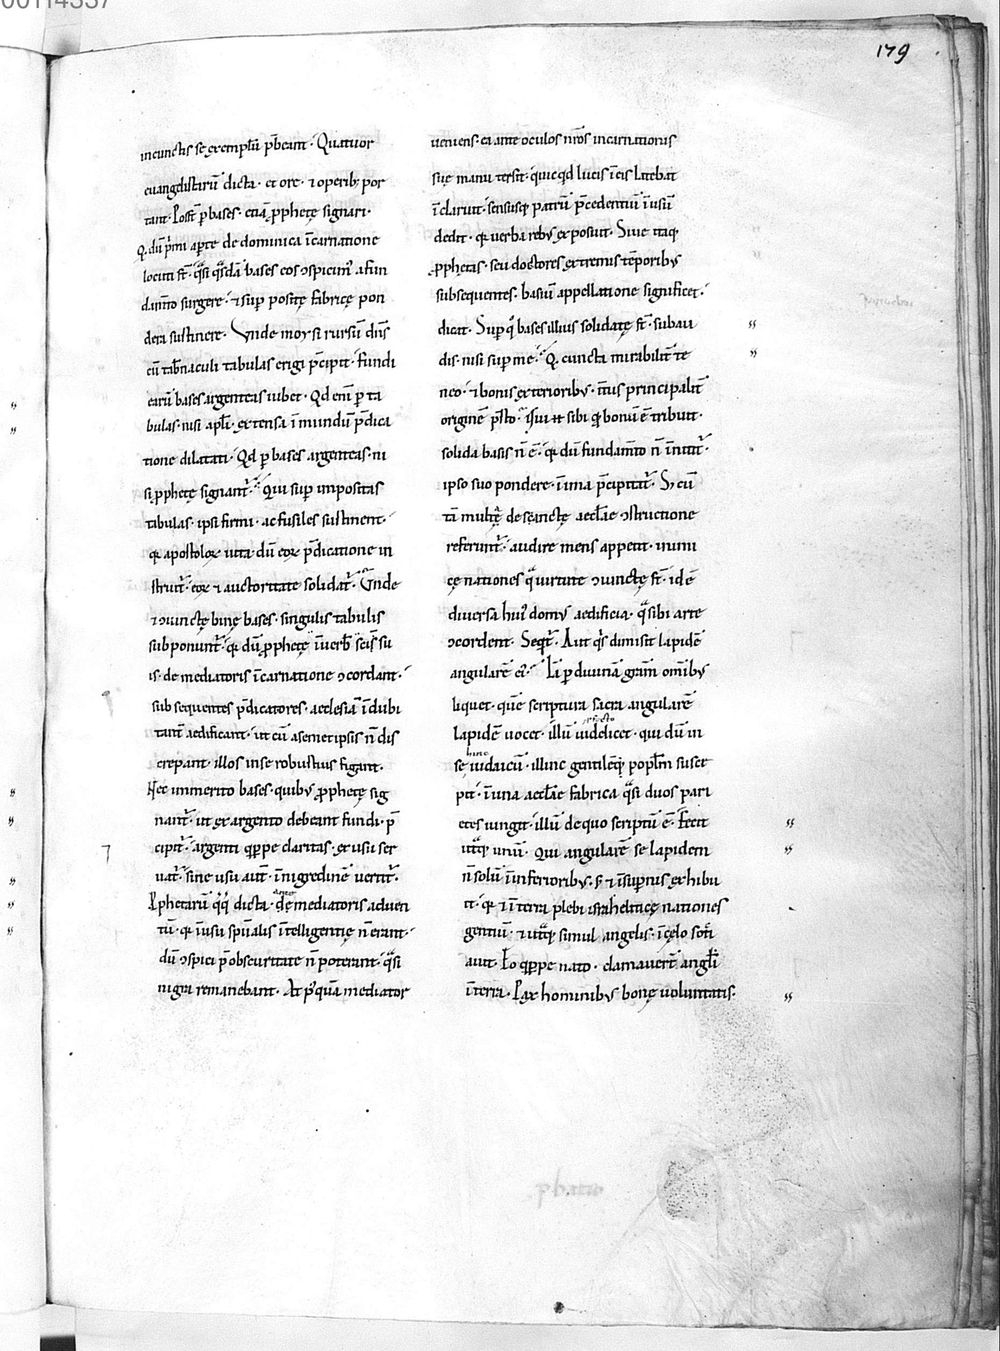 00114337
179
incunctis se exemplū p̄beant· Quatuor
euangelistarū dicta· et ore· ⁊ operib; por
tant· Possr̄ p bases· etiā ꝓphetę signari·
Q, dū p̄mi aꝑte de dominica īcarnatione
locuti st̄· q̄si q̄sdā bases eos ↄspicim᾽ afun
dam̄to surgere· ⁊ suꝑ positę fabricę pon
dera sustinere· Vnde moysi rursū dn̄s
cū tab̄naculi tabulas erigi p̄cipit· fundi
earū bases argenteas iubet· Qd eni ꝑ ta
bulas· nisi apl̄i· extensa ī mundū p̄dica
tione dilatati· Qd ꝑ bases argenteas· ni
si ꝓphetę signant᷑· Qui suꝑ impositas
tabulas· ipsi firmi· ac fusiles sustinent·
qꝛ apostoloꝝ uita· dū eoꝝ p̄dicatione in
struit᷑· eoꝝ ⁊ auctoritate solidat᷑· Vnde
⁊ ↄiunctę binę bases· singulis tabulis
subponunt᷑· qꝛ dū ꝓphetę īuerb̄ sc̄is su
is· de mediatoris īcarnatione ↄcordant·
sub sequentes p̄dicatores· aecclesiā īdubi
tant᷑ aedificant· ut cū asemetipsis n̄ dis
crepant· illos inse robustius figant·
Nec immerito bases· quibꝰ ꝓphetę sig
nant᷑· ut ex argento debeant fundi· p̄
cipit᷑· argenti qꝑpe claritas· ex usu ser
uat᷑· sine usu aūt· īnigredinē uertit᷑·
Pphetarū q̄q̄ dicta· ante de mediatoris aduen
tū· qꝛ īusu spūalis ītelligentię n̄ erant·
dū ↄspici p̄ obscuritate n̄ poterant· q̄si
nigra remanebant· At p᾽quā mediator
ueniens· ea ante oculos nr̄os incarnationis
suę manu tersit· quicqd lucis īeis latebat
īclaruit· sensusqꝫ patrū p̄cedentiū īusū
dedit· qꝛ uerba rebꝰ exposuit· Siue itaqꝫ
ꝓphetas· seu doctores extremis tēporibꝰ
subsequentes· basiū appellatione significet·
dicat· Suꝑ q̄ bases illius solidatę st̄· subau
dis· nisi suꝑ me· Q, cuncta mirabilit᷑ te
neo· ⁊ bonis exterioribꝰ· int᷑ius principalit᷑
originē p̄sto·
solida basis n̄ ē· qꝛ dū fundam̄to n̄ īnitit᷑·
ipso suo pondere· īima p̄cipitat᷑· Sꝫ cū
tā multę de sc̄ę aeccl̄ae ↄstructione
referunt᷑· audire mens appetit· inimi
cę nationes q̄ uirtute ↄiunctę st̄· idē
diuersa hui᾽ domꝰ aedificia· q̄ sibi arte
ↄcordent· Seqt᷑· Aut q̄s dimisit lapidē
angularē ei᾽· Iā ꝑ diuinā gr̄am om̄ibꝰ
liquet· quē scriptura sacra angularē
lapidē uocet· illū uidelicet· qui dū in
se hinc iudaicū· illinc gentilēqꝫ popl̄m susce
pit· īuna aeccl̄ae fabrica q̄si duos pari
etes iungit· illū de quo scriptū ē· Fecit
ut᷑qꝫ unū· Qui angularē se lapidem
n̄ solū īinferioribꝰ· sꝫ ⁊ īsuꝑnis exhibu
it· qꝛ ⁊ īterra plebi israheliticę nationes
gentiū· ⁊ ut᷑qꝫ simul angelis· īcęlo soti
auit· Eo qꝑpe nato· clamauer̄t angl̄i
īterra· Pax hominibꝰ bonę uoluntatis·
ꝓbatio